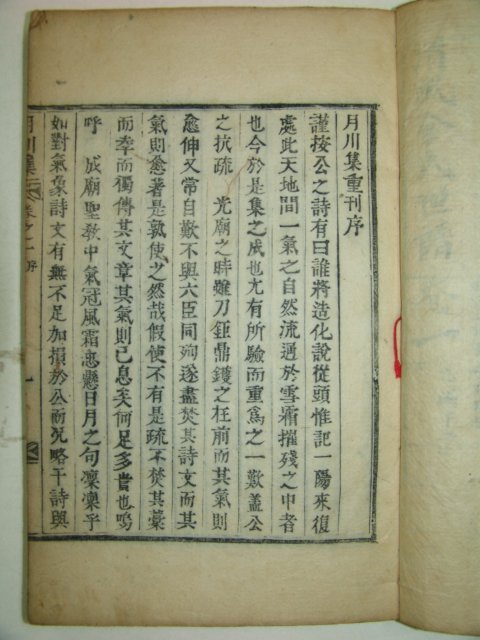 月川集重刊序
謹按公之詩有曰誰將造化說從頭惟記一陽來復
處此天地間一氣之自然流過於雪霜摧殘之中者
也今於是集之成也尤有所驗而重爲之一歎盖公
之抗疏　光廟之時雖刀鉅鼎鑊之在前而其氣則
愈伸又常自歎不與六臣同殉遂盡焚其詩文而其
氣則愈著是孰使之然哉假使不有是疏不焚其藁
而幸而獨傳其文章其氣則已息矣何足多甞也嗚
呼　成廟聖敎中氣冠風霜忠懸日月之句凜凜乎
如對氣象詩文有無不足加損於公而況略干詩與
月川集 卷之一 序 一